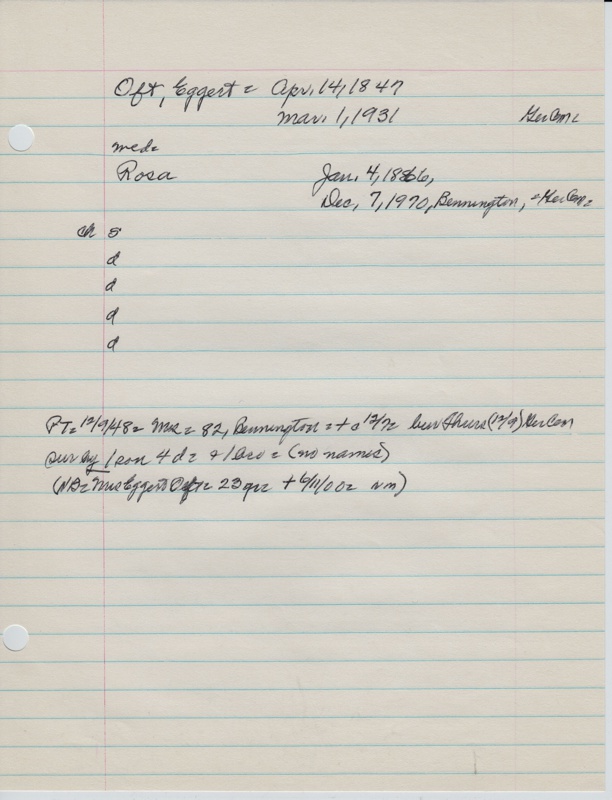 Oft, Eggert = Apr. 14, 1847
Mar. 1, 1931 Ger Cem =
med =
Rosa Jan. 4, 1866,
Dec, 7, 1970, Bennington, = Ger Cem =
ch s
d
d
d
d
PT = 12/9/48 = Mrs = 82, Bennington = + a 12/7 = bur Thurs (12/9) Ger Cem
sur by 1 son 4 d = + 1 bro = (no names)
(ND = Mrs Eggert Oft = 23 yr = + 6/11/00 = nm)